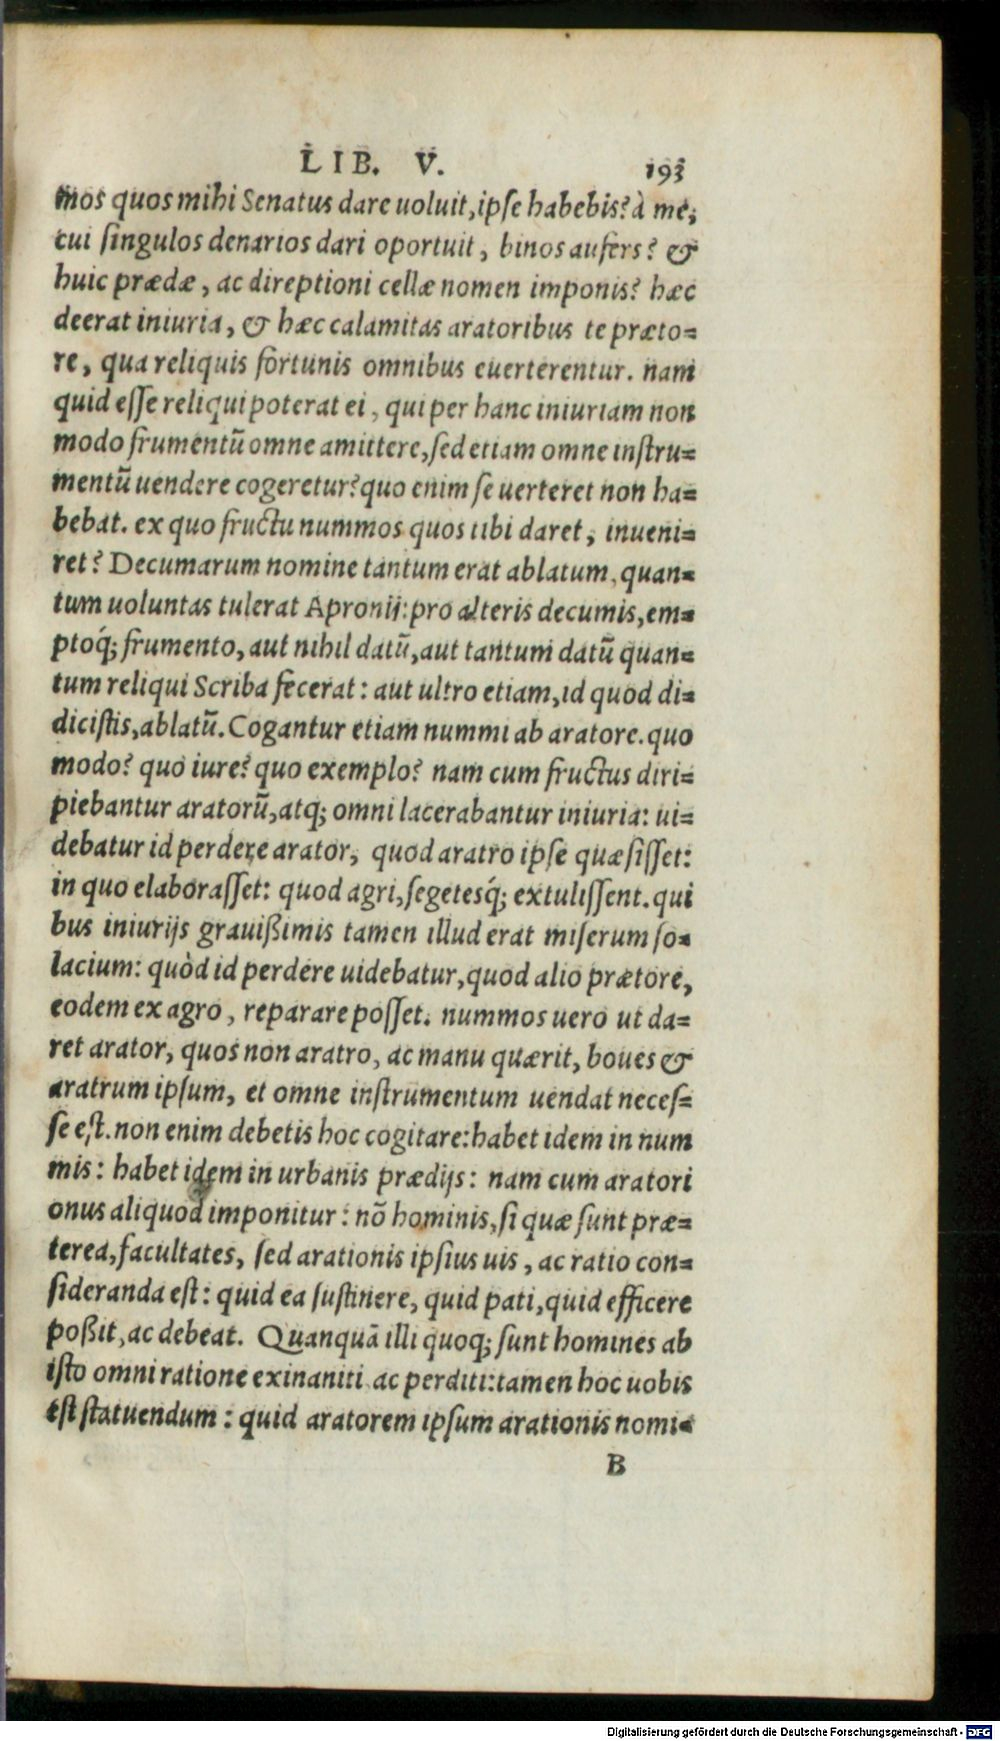 LIB. V. 193
mos quos mihi Senatus dare uoluit, ipse habebis? à me,
cui singulos denarios dari oportuit, binos aufers? &
huic prædæ, ac direptioni cellæ nomen imponis? hæc
deerat iniuria, & hæc calamitas aratoribus te præto=
re, qua reliquis fortunis omnibus euerterentur. nam
quid esse reliqui poterat ei, qui per hanc iniuriam non
modo frumentũ omne amittere, sed etiam omne instru=
mentũ uendere cogeretur? quo enim se uerteret non ha=
bebat. ex quo fructu nummos quos tibi daret, inueni=
ret? Decumarum nomine tantum erat ablatum, quan=
tum uoluntas tulerat Apronij: pro alteris decumis, em=
ptoq́; frumento, aut nihil datũ, aut tantum datũ quan=
tum reliqui Scriba fecerat: aut ultro etiam, id quod di=
dicistis, ablatũ. Cogantur etiam nummi ab aratore. quo
modo? quo iure? quo exemplo? nam cum fructus diri=
piebantur aratorũ, atq; omni lacerabantur iniuria: ui=
debatur id perdere arator, quod aratro ipse quæsisset:
in quo elaborasset: quod agri, segetesq́; extulissent. qui
bus iniurijs grauißimis tamen illud erat miserum so=
lacium: quòd id perdere uidebatur, quod alio prætore,
eodem ex agro, reparare posset. nummos uero ut da=
ret arator, quos non aratro, ac manu quærit, boues &
aratrum ipsum, et omne instrumentum uendat neces=
se est. non enim debetis hoc cogitare: habet idem in num
mis: habet idem in urbanis prædijs: nam cum aratori
onus aliquod imponitur: nõ hominis, si quæ sunt præ=
terea, facultates, sed arationis ipsius uis, ac ratio con=
sideranda est: quid ea sustinere, quid pati, quid efficere
poßit, ac debeat. Quanquã illi quoq; sunt homines ab
isto omni ratione exinaniti ac perditi: tamen hoc uobis
est statuendum: quid aratorem ipsum arationis nomi=
B
Digitalisierung gefördert durch die Deutsche Forschungsgemeinschaft - DFG